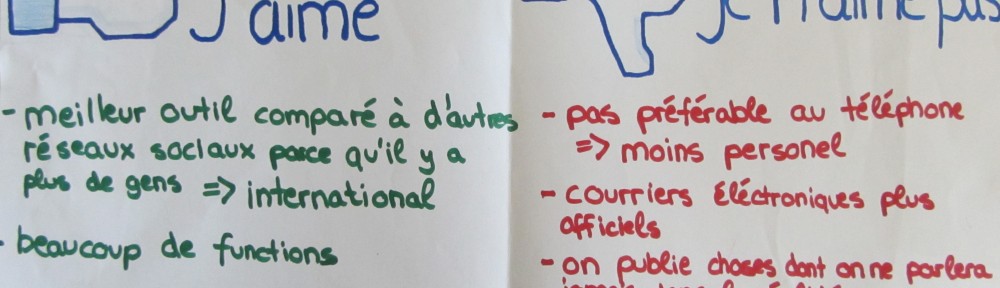 J'aime
- meilleur outil comparé à d'autres
réseaux sociaux parce qu'il y a
plus de gens => international
- beaucoup de functions
je n'aime pas
- pas préférable au téléphone
=> moins personel
- courriers éléctroniques plus
officiels
- on publie choses dont on ne parlera